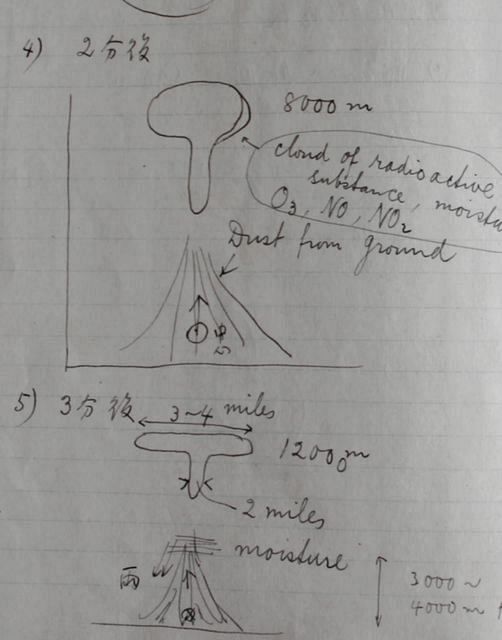 4) 2分後
8000 m
cloud of radioactive
substance, moistu
O3, NO, NO2
Dust from ground
5) 3分後
3~4 miles
12000m
2 miles
moisture
雨
3000~
4000 m